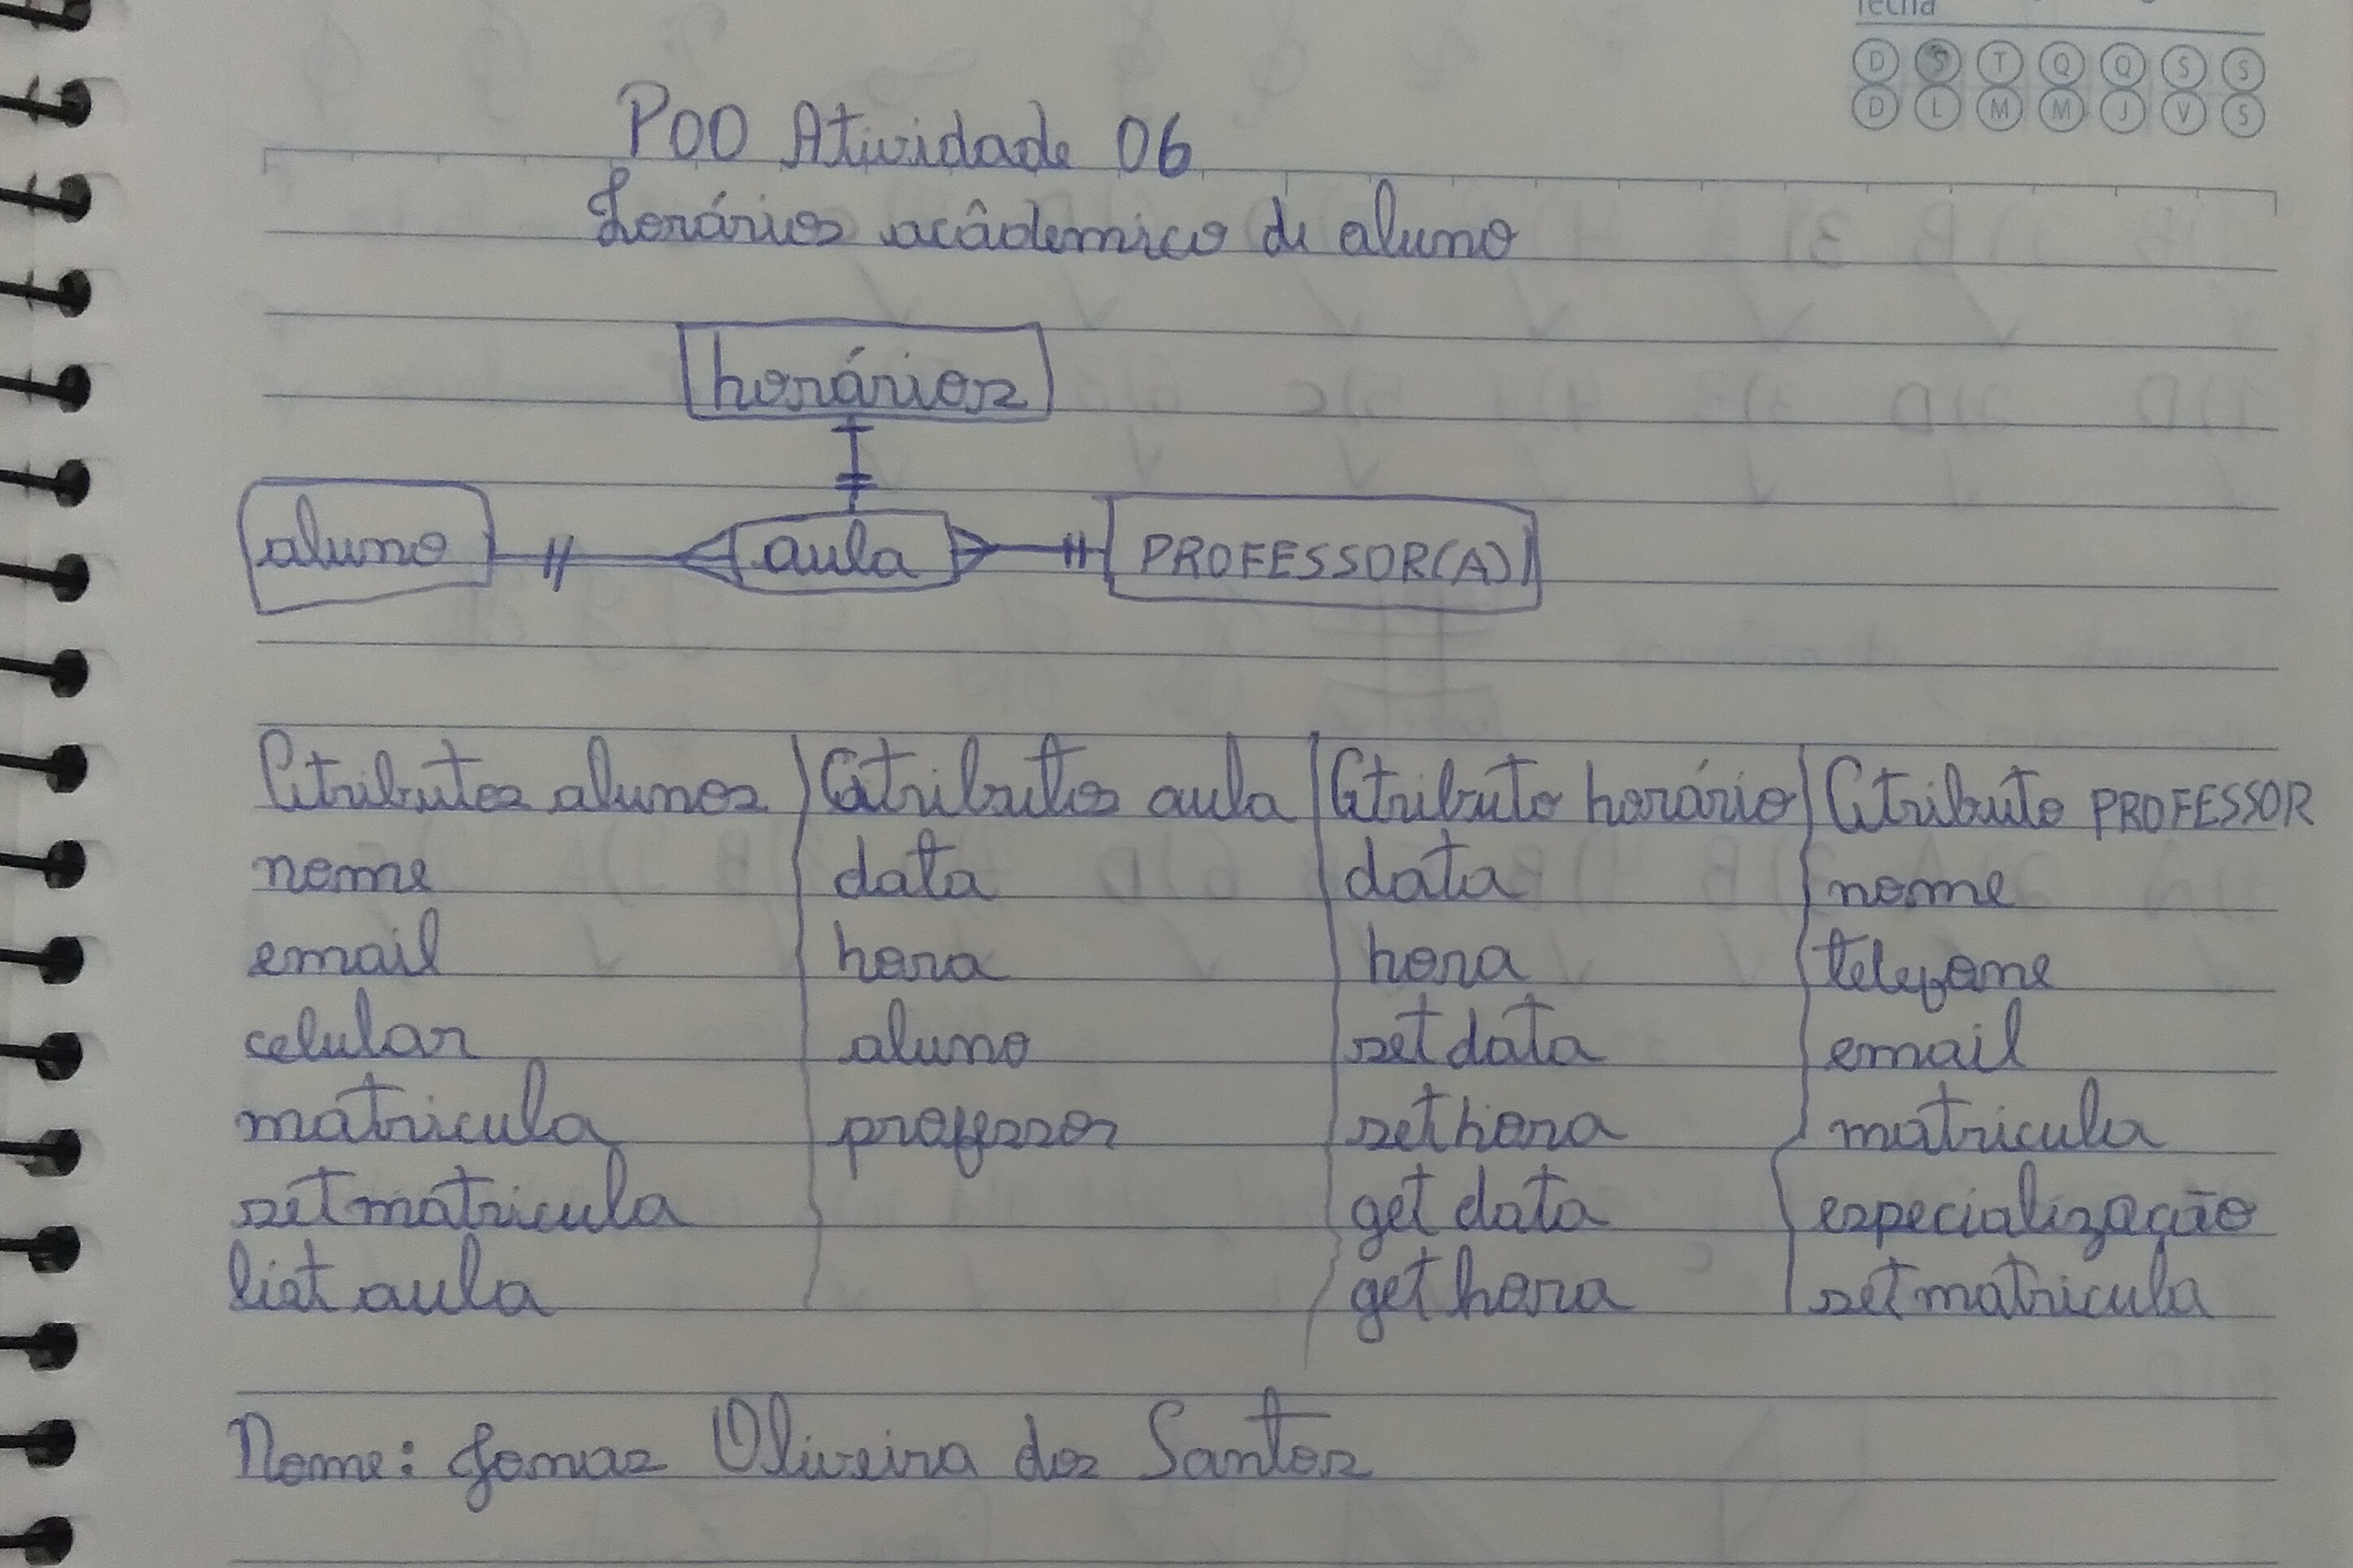 fecha
D S T Q Q S S
D L M M J V S
POO Atividade 06
Horários acâdemico de aluno
horários
aluno aula PROFESSOR(A)
Atributos alunos Atributos aula Atributo horário Atributo PROFESSOR
nome data data nome
email hora hora telefone
celular aluno set data email
matricula professor set hora matricula
set matricula get data especialização
list aula get hora set matricula
Nome: Jonas Oliveira dos Santos